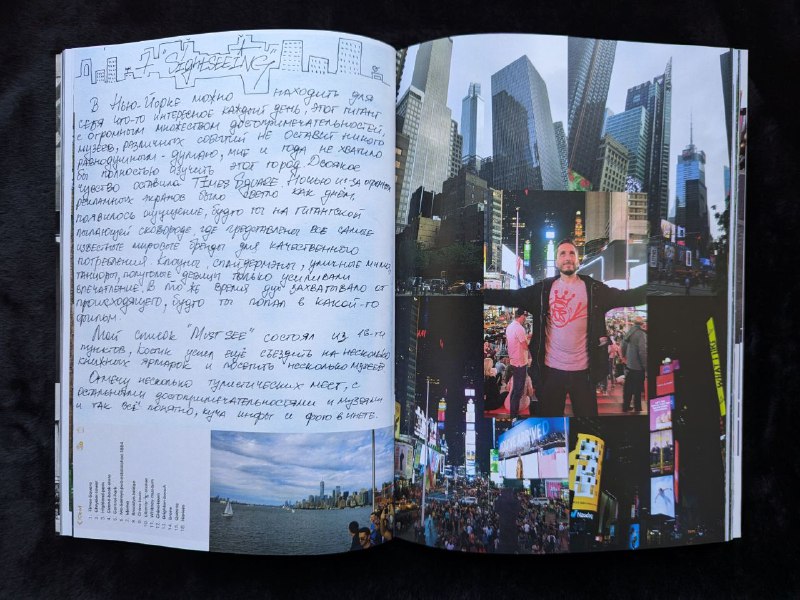 SIGHTSEEING
В Нью-Йорке можно находить для
себя что-то интересное каждый день, этот гигант
с огромным множеством достопримечательностей,
музеев, различных событий не оставит никого
равнодушным - думаю, мне и года не хватило
бы полностью изучить этот город. Двоякое
чувство оставила Times Square. Ночью из-за огромных
рекламных экранов было светло как днём,
появилось ощущение, будто ты на гигантской
пылающей сковороде где представлены все самые
известные мировые бренды для качественного
потребления. Клоуны, спайдермены, уличные
танцоры, полуголые девицы только усиливали
впечатление. В то же время дух захватывало от
происходящего, будто ты попал в какой-то
фильм.
Мой список "Must see" состоял из 16-ти
пунктов, Костик успел ещё съездить на несколько
книжных ярмарок и посетить несколько музеев.
Опишу несколько туристических мест, с
остальными достопримечательностями и музеями
и так всё понятно, куча инфы и фото в инете.
1. Times Square
5. Central Park
Nasdaq